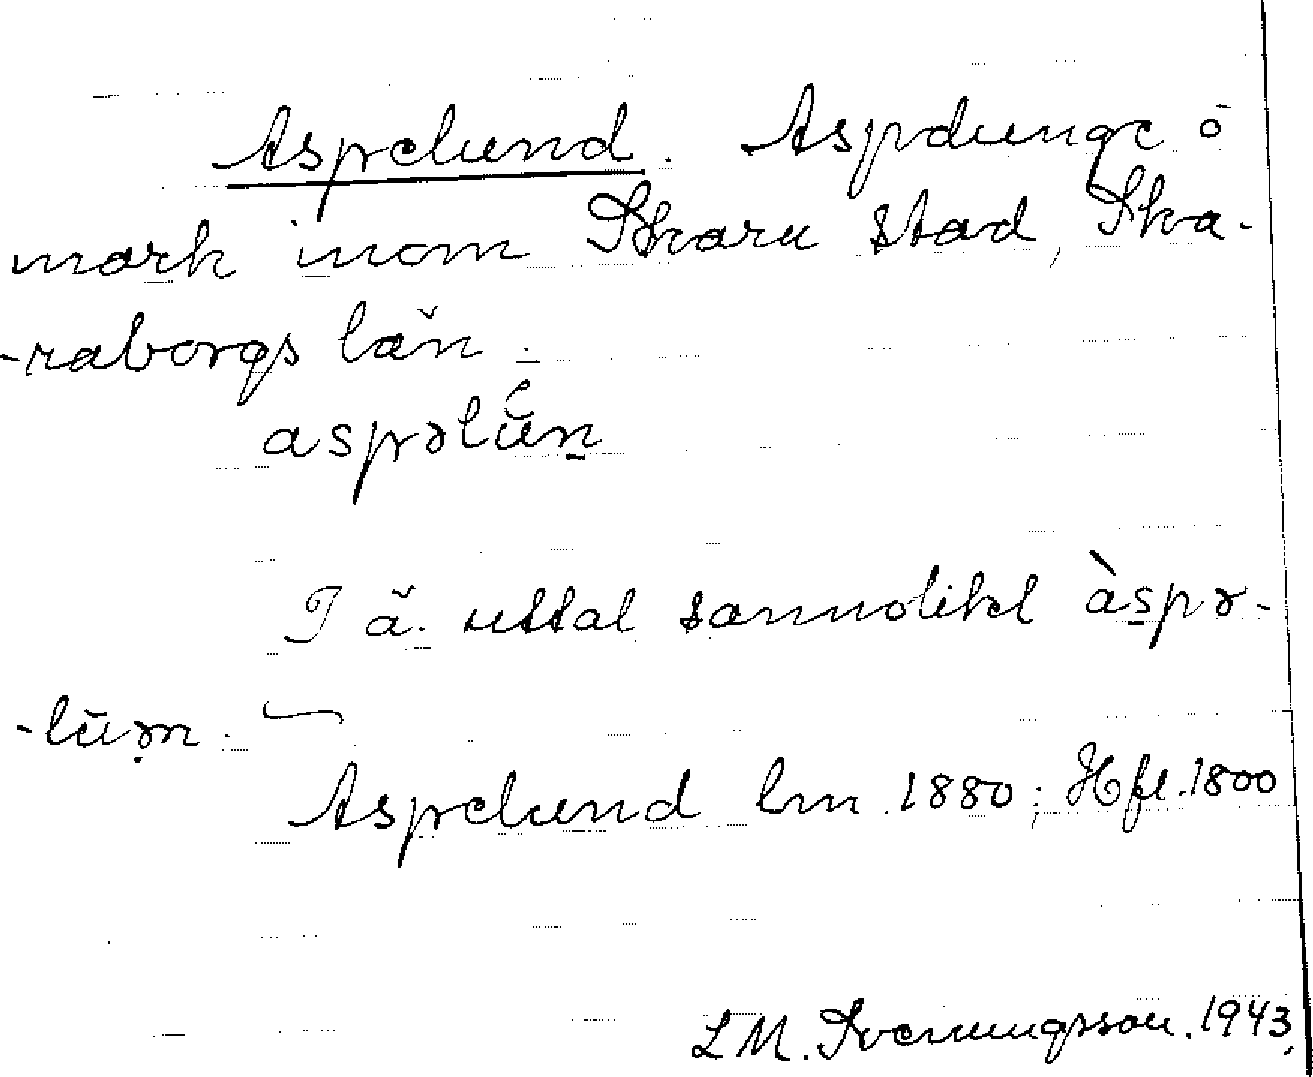 Aspelund. Aspdunge o
mark inom Skara stad, Ska-
-raborgs län.
aspəlún
I ä. uttal sannolikt àspə-
-lūn.
Aspelund lm 1880; Hfl. 1800
L M. Svenungsson. 1943.